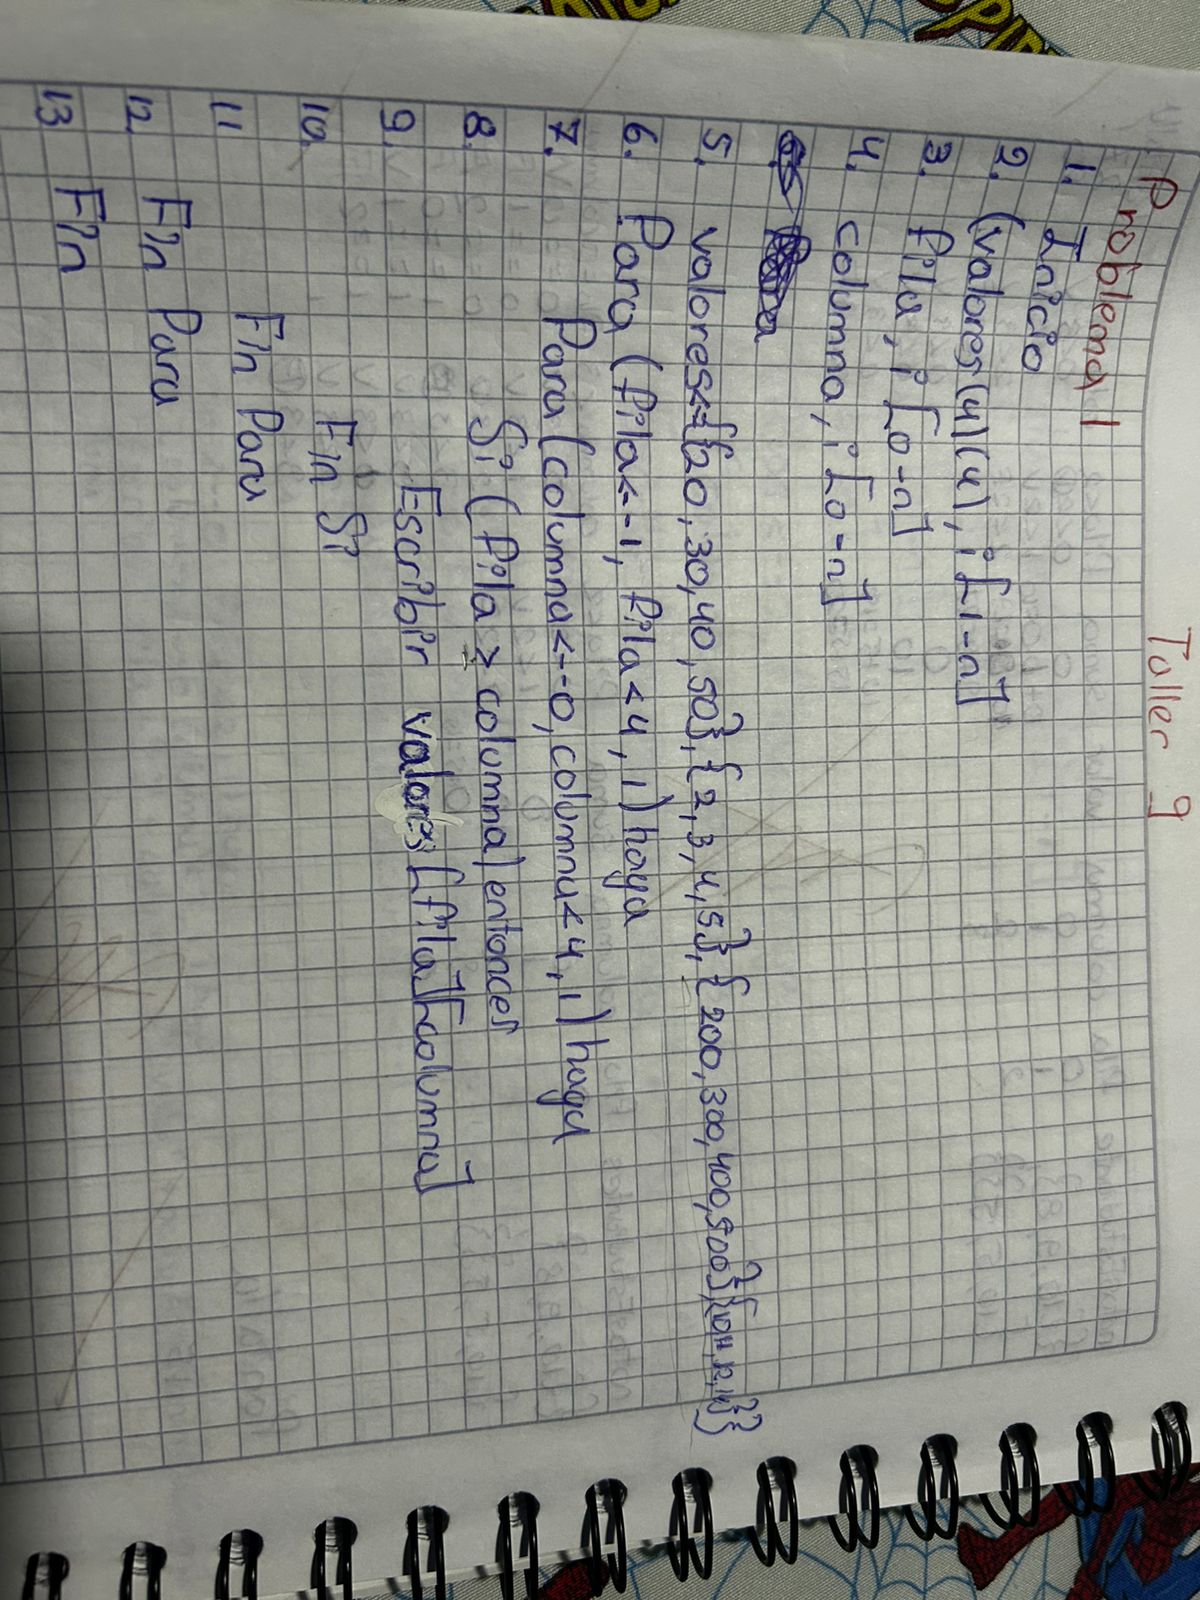 Taller 9
Problema 1
1. Inicio
2. (valores(4)(4), i[1-n]
3. fila, i [0-n]
4. columna, i [0-n]
5. valores<={{20,30,40,50},{2,3,4,5},{200,300,400,500}{
6. Para (fila<-1, fila<4, 1) haga
7. Para (columna<-0, columna<4, 1) haga
8. Si (fila > columna) entonces
9. Escribir valores [fila][columna]
10. Fin Si
11 Fin Para
12. Fin Para
13 Fin